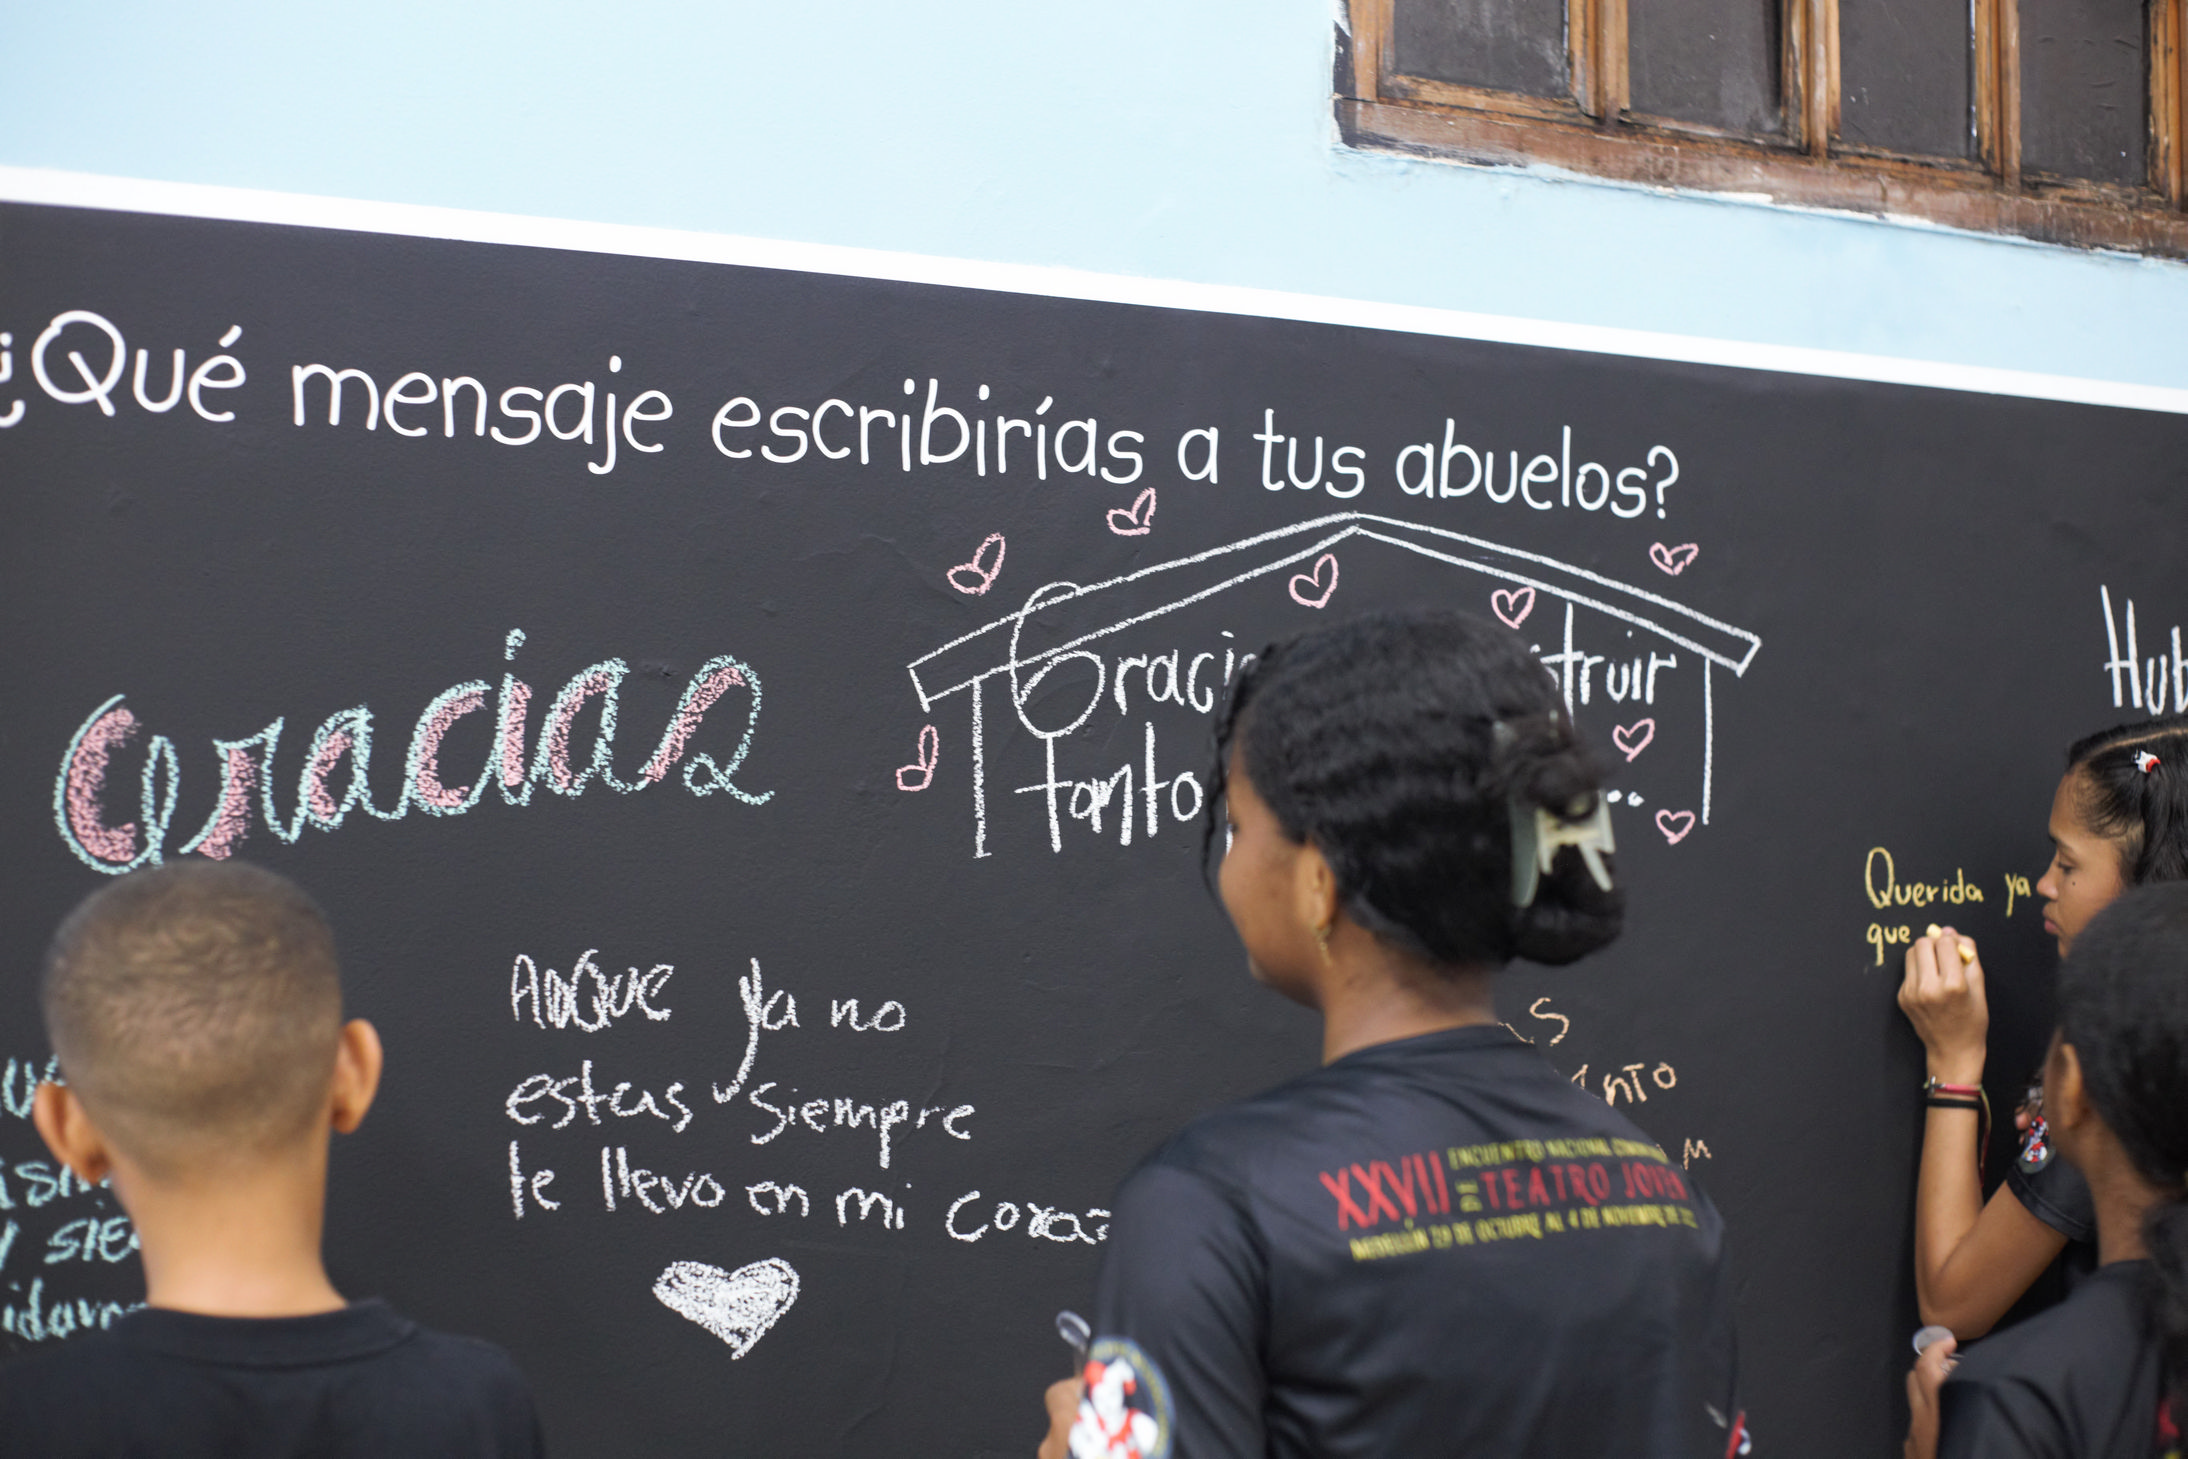 ¿Qué mensaje escribirías a tus abuelos?
Gracias
Graci truir
tanto ...
Hub
Querida ya
que
AUNQUE ya no
estas siempre
te llevo en mi coraz
AS
ENTO
y sie
XXVII ENCUENTRO NACIONAL COMUNI
DE TEATRO JOVEN
MEDELLÍN 29 DE OCTUBRE AL 4 DE NOVIEMBRE DE